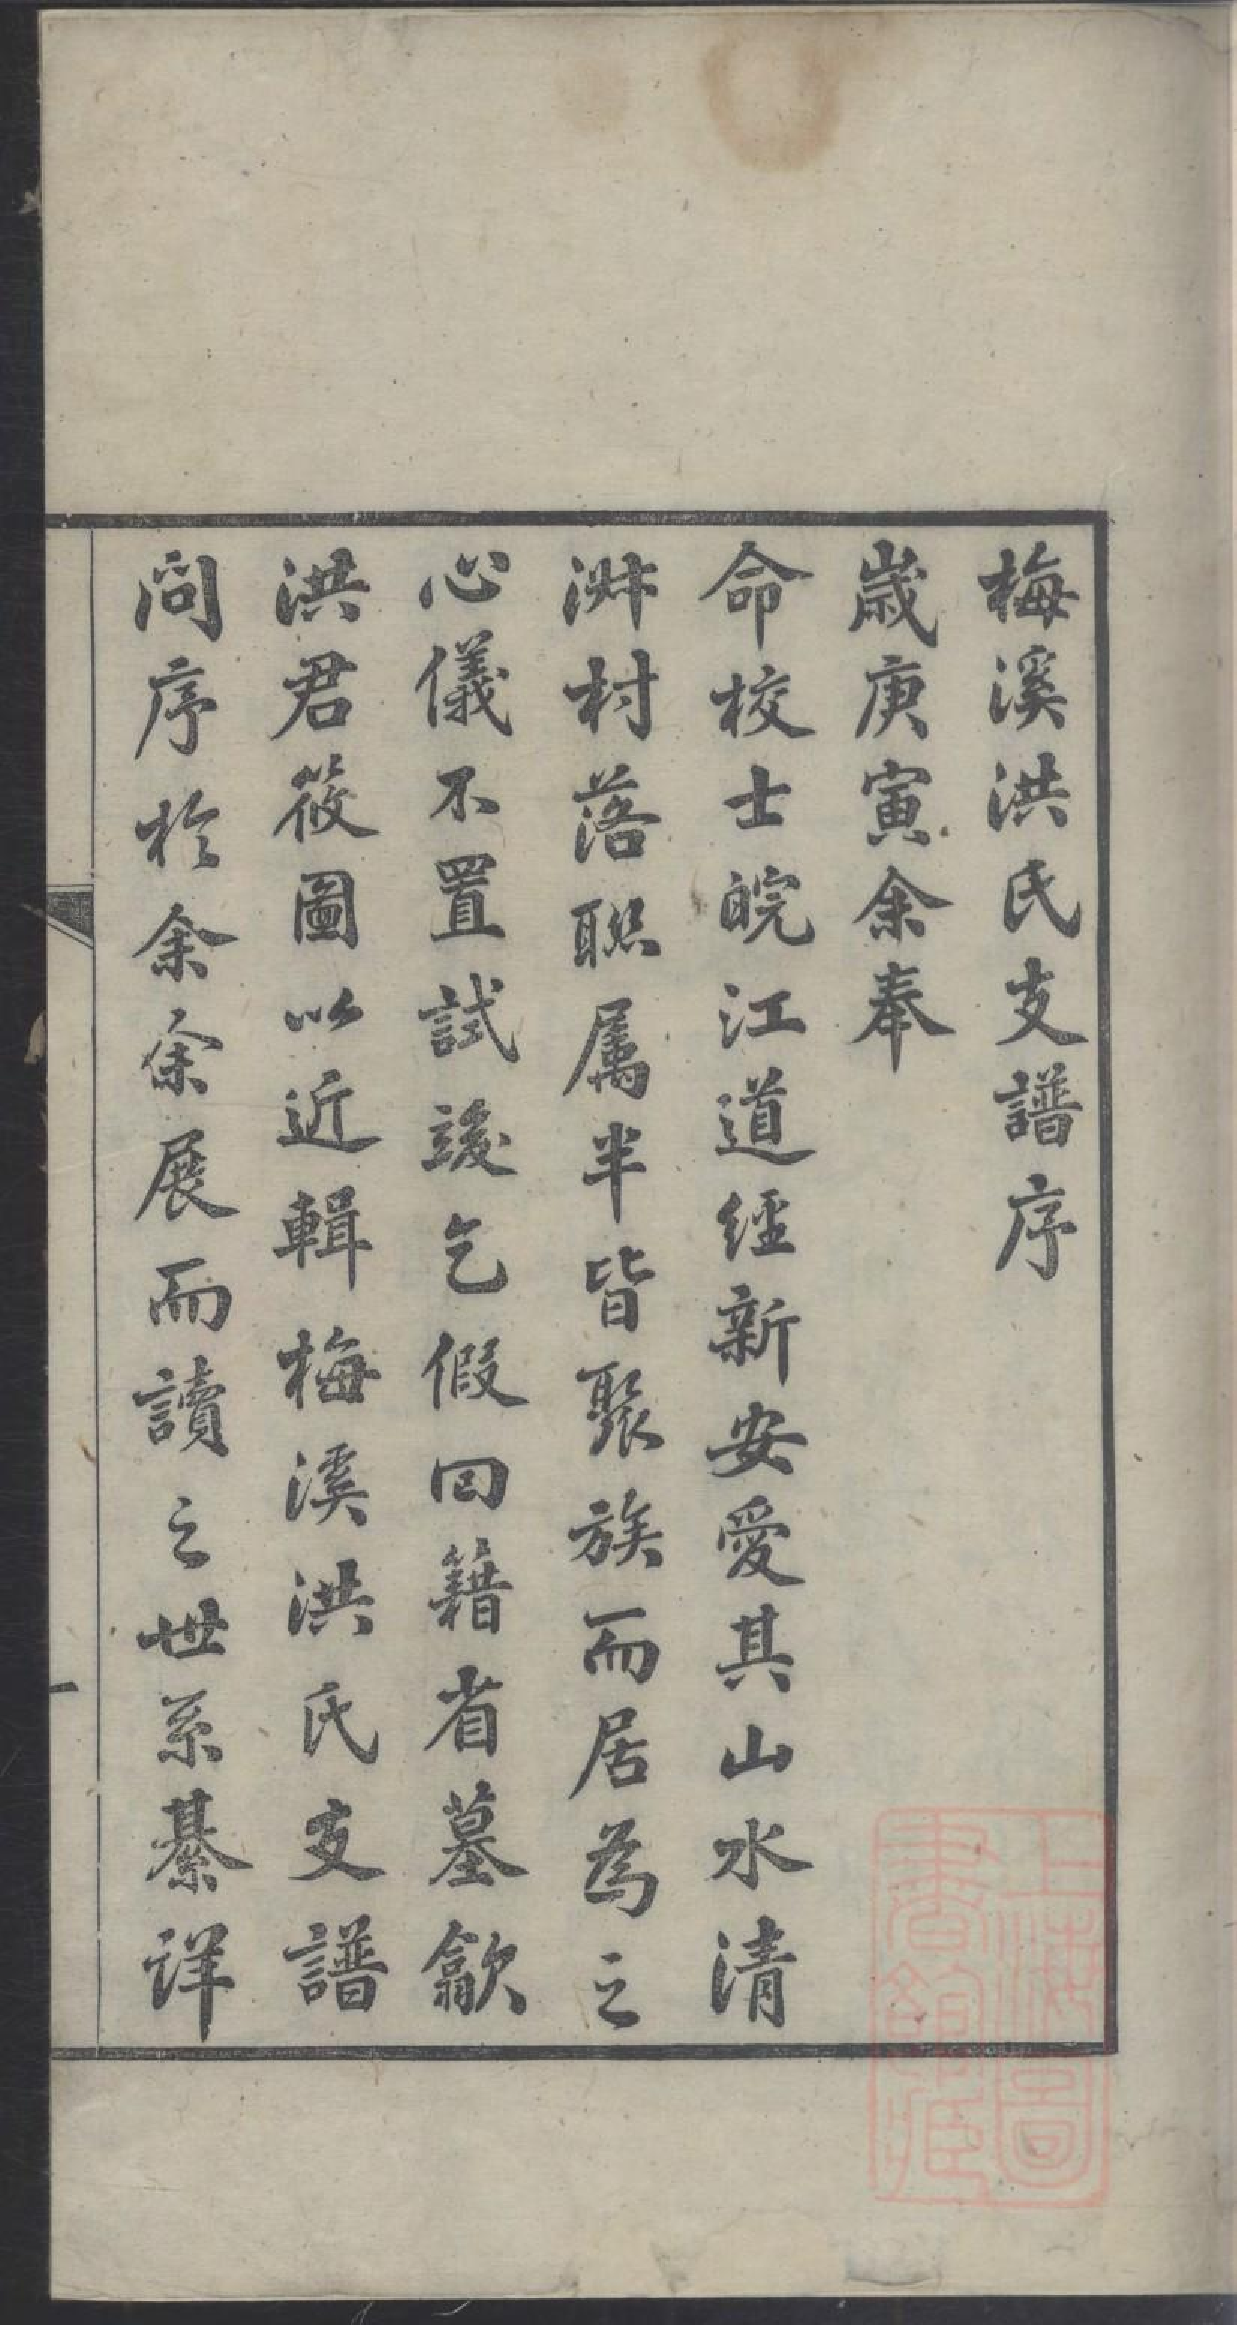 梅溪洪氏支譜序
歲庚寅余奉
命校士皖江道經新安愛其山水清
淑村落聯属半皆聚族而居為之
心儀不置試竣乞假回籍省墓歙
洪君筱圖以近輯梅溪洪氏支譜
問序於余余展而讀之世系綦详
一
上海圖
書館藏